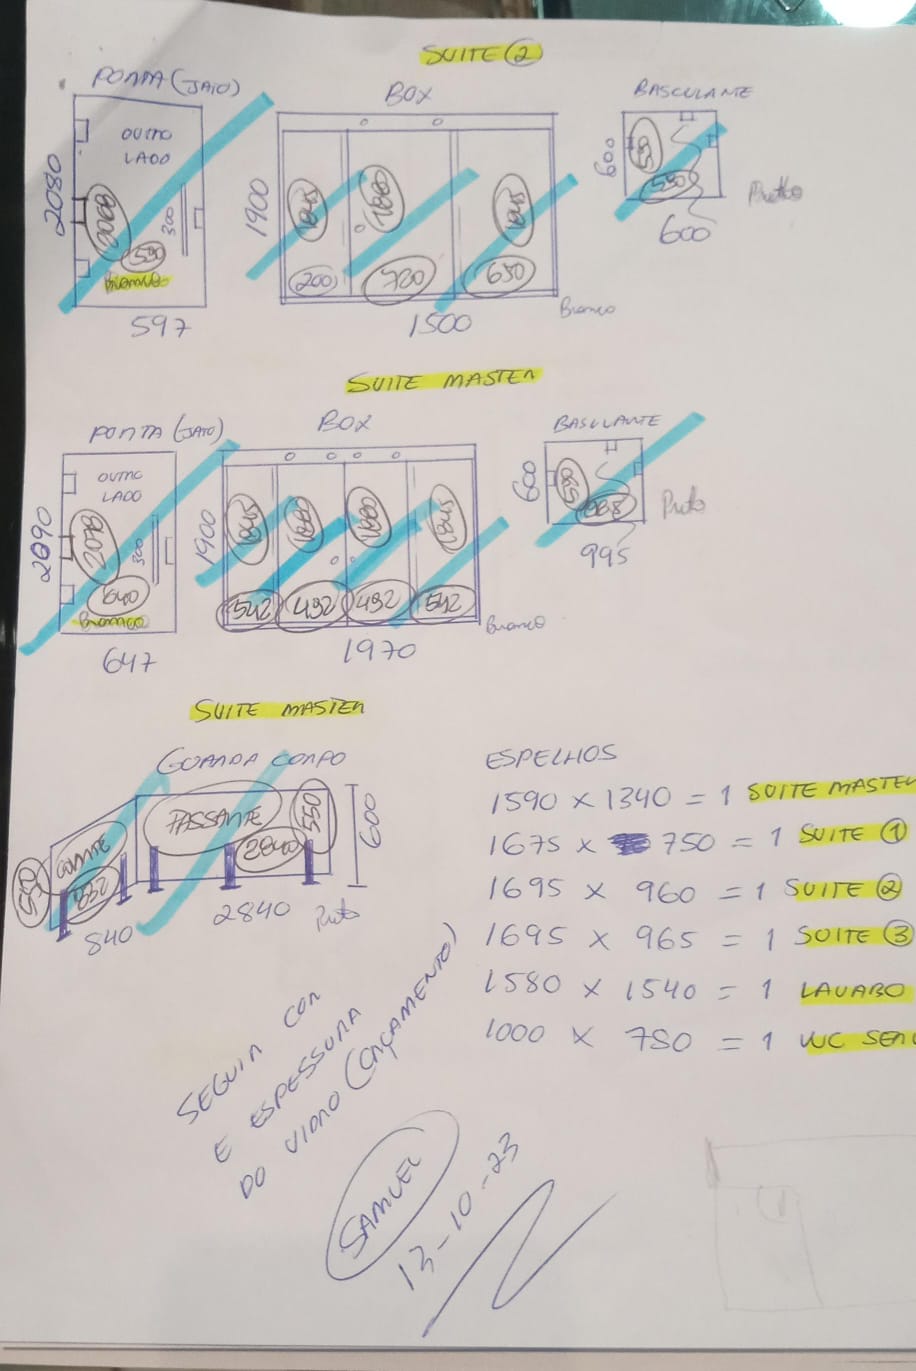 SUITE 2
PORTA (JATO)
BOX
BASCULANTE
OUTRO
LADO
2080
2008
590
300
Branco
597
1900
1845
1880
1845
200
720
650
1500
Branco
600
590
600
Preto
SUITE MASTER
PORTA (JATO)
BOX
BASCULANTE
OUTRO
LADO
2090
2078
640
300
Branco
647
1900
1845
1880
1880
1845
542
492
492
542
1970
Branco
600
995
Preto
SUITE MASTER
GUARDA CORPO
PASSANTE
550
600
2840
550
832
840
2840
Preto
ESPELHOS
1590 x 1340 = 1 SUITE MASTER
1675 x 750 = 1 SUITE 1
1695 x 960 = 1 SUITE 2
1695 x 965 = 1 SUITE 3
1580 x 1540 = 1 LAVABO
1000 x 780 = 1 WC SER
SEGUIR COR
E ESPESSURA
DO VIDRO (ORÇAMENTO)
SAMUEL
13-10-23